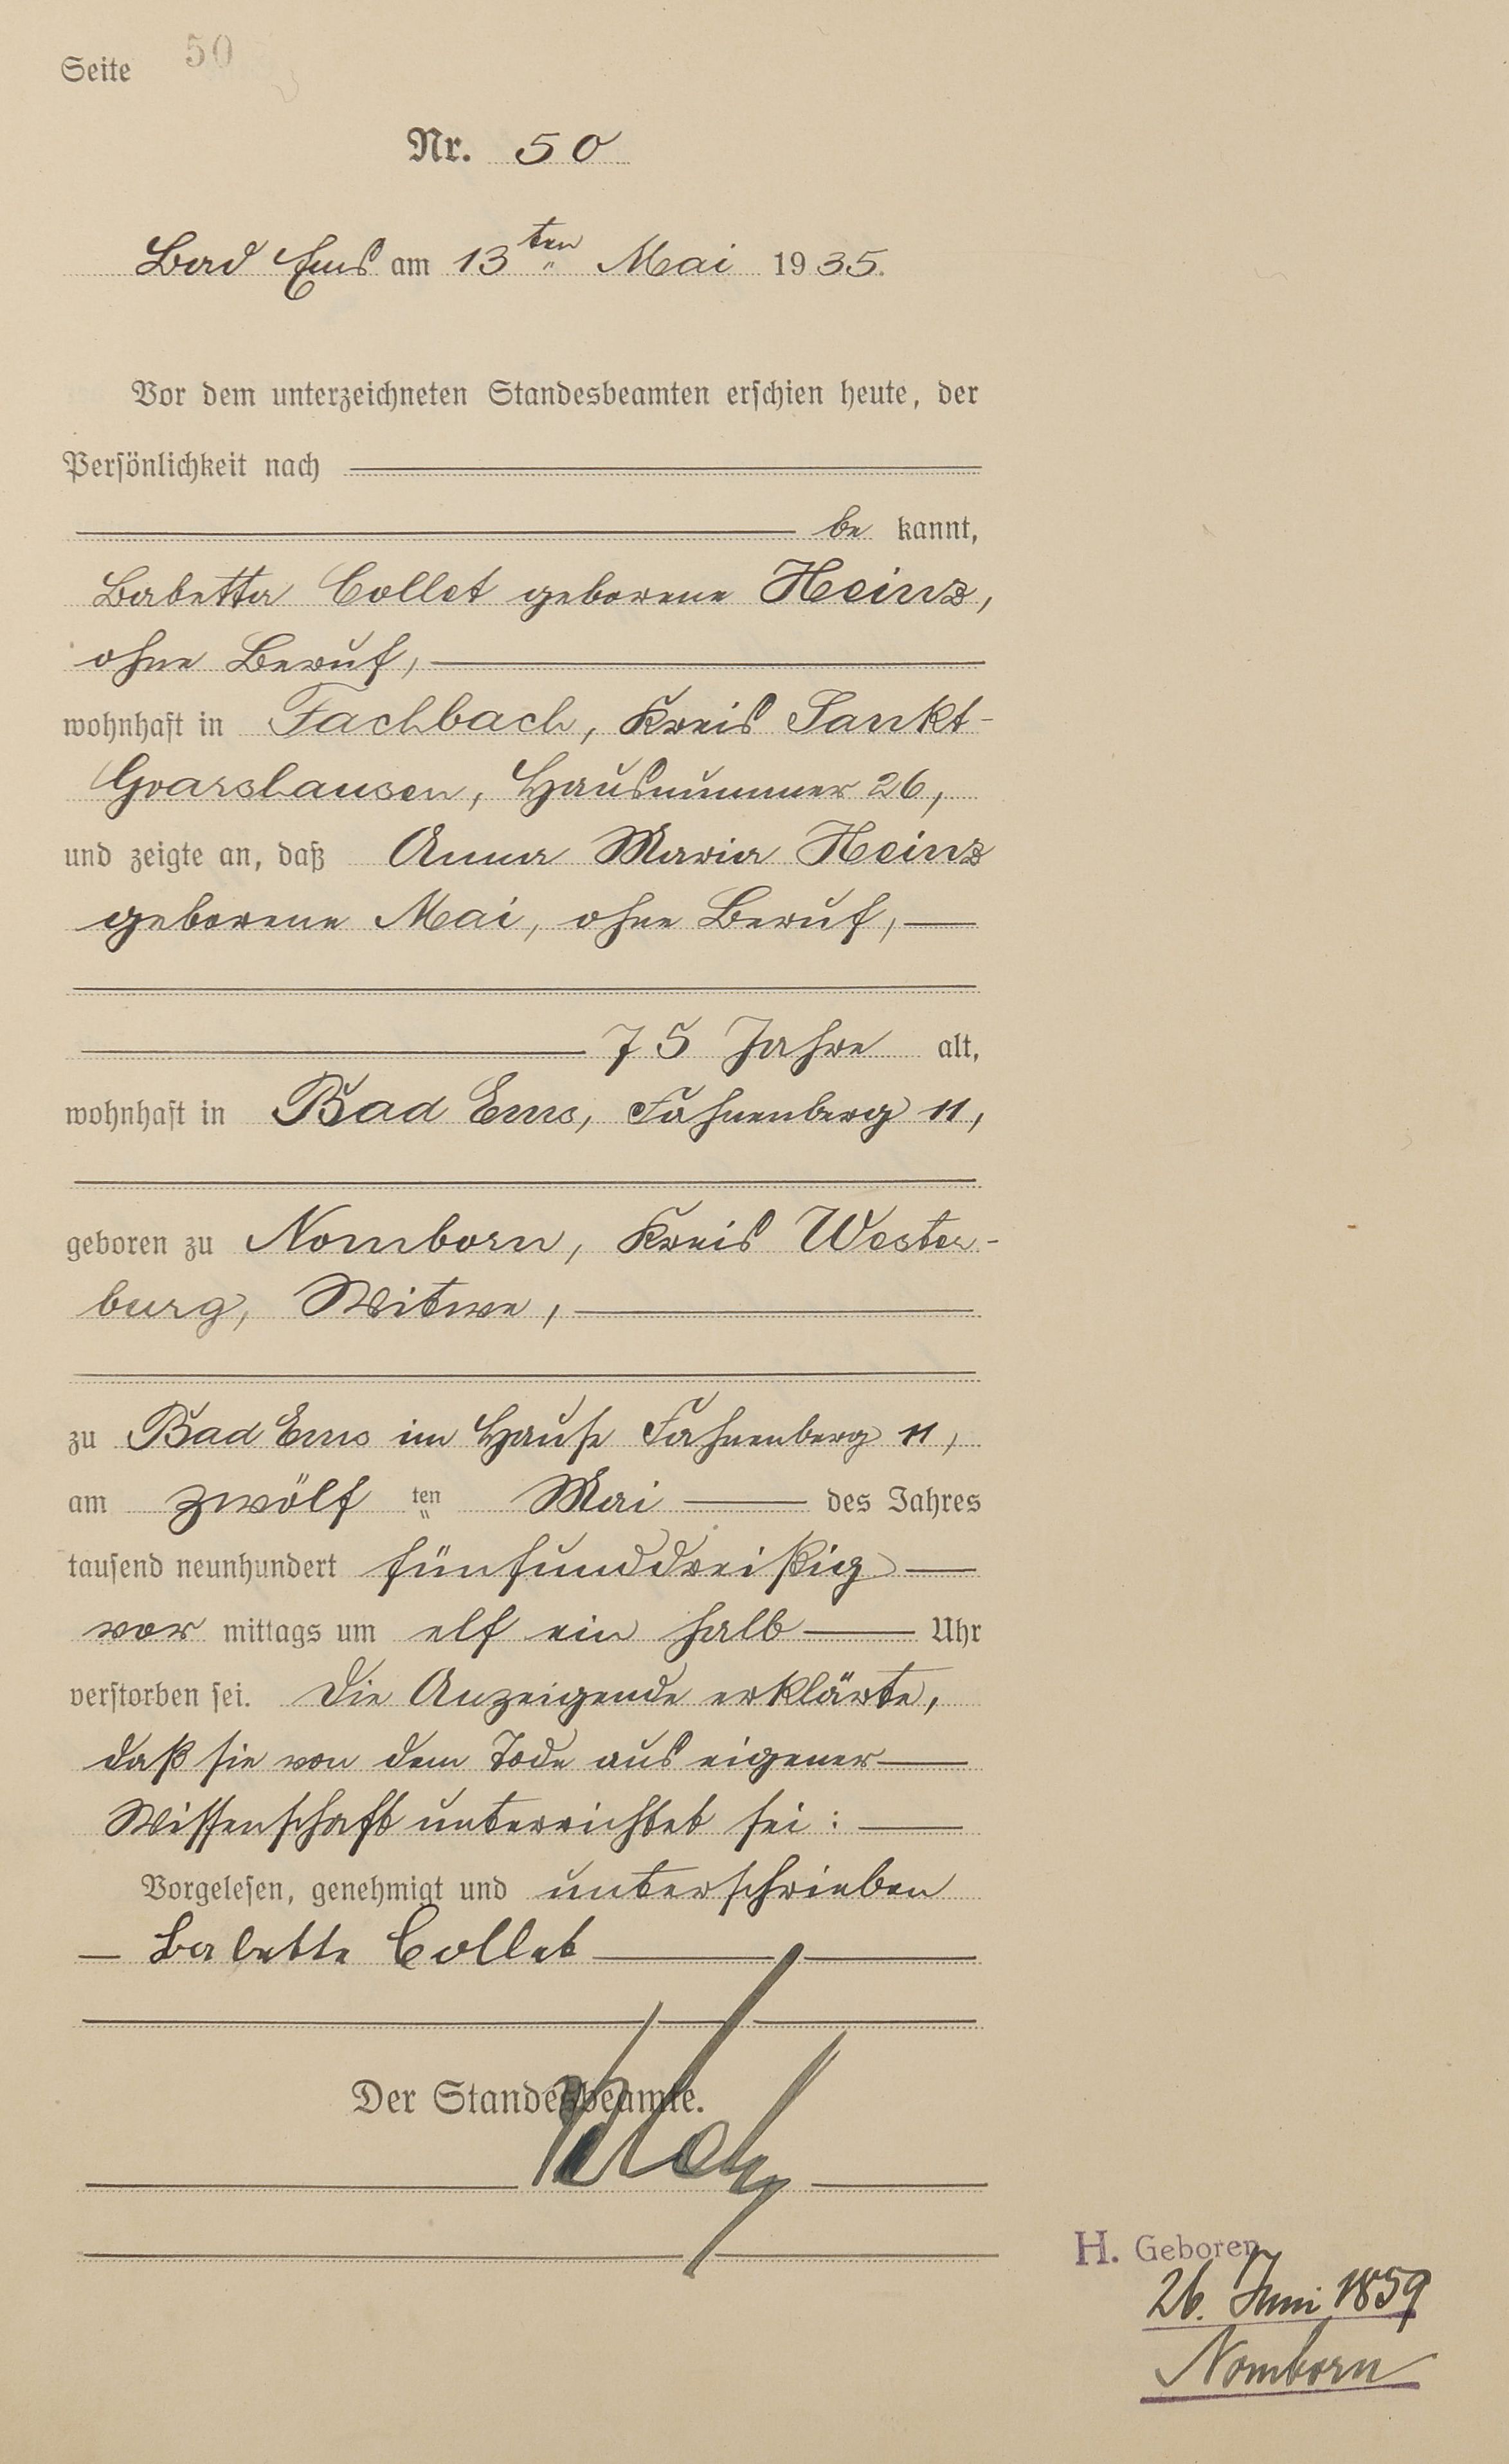 Seite 50
Nr. 50
Bad Ems am 13ten Mai 1935.
Vor dem unterzeichneten Standesbeamten erschien heute, der
Persönlichkeit nach
be kannt,
Babetta Collet geborene Heinz,
ohne Beruf,
wohnhaft in Fachbach, Kreis Sankt-
Goarshausen, Hausnummer 26,
und zeigte an, daß Anna Maria Heinz
geborene Mai, ohne Beruf,
75 Jahre alt,
wohnhaft in Bad Ems, Fahnenberg 11,
geboren zu Nomborn, Kreis Wester-
burg, Witwe,
zu Bad Ems im Hause Fahnenberg 11,
am zwölf ten Mai des Jahres
tausend neunhundert fünfunddreißig
vor mittags um elf ein halb Uhr
verstorben sei. Die Anzeigende erklärte,
daß sie von dem Tode aus eigener
Wissenschaft unterrichtet sei:
Vorgelesen, genehmigt und unterschrieben
Babette Collet
Der Standesbeamte.
H. Geboren
26. Juni 1859
Nomborn